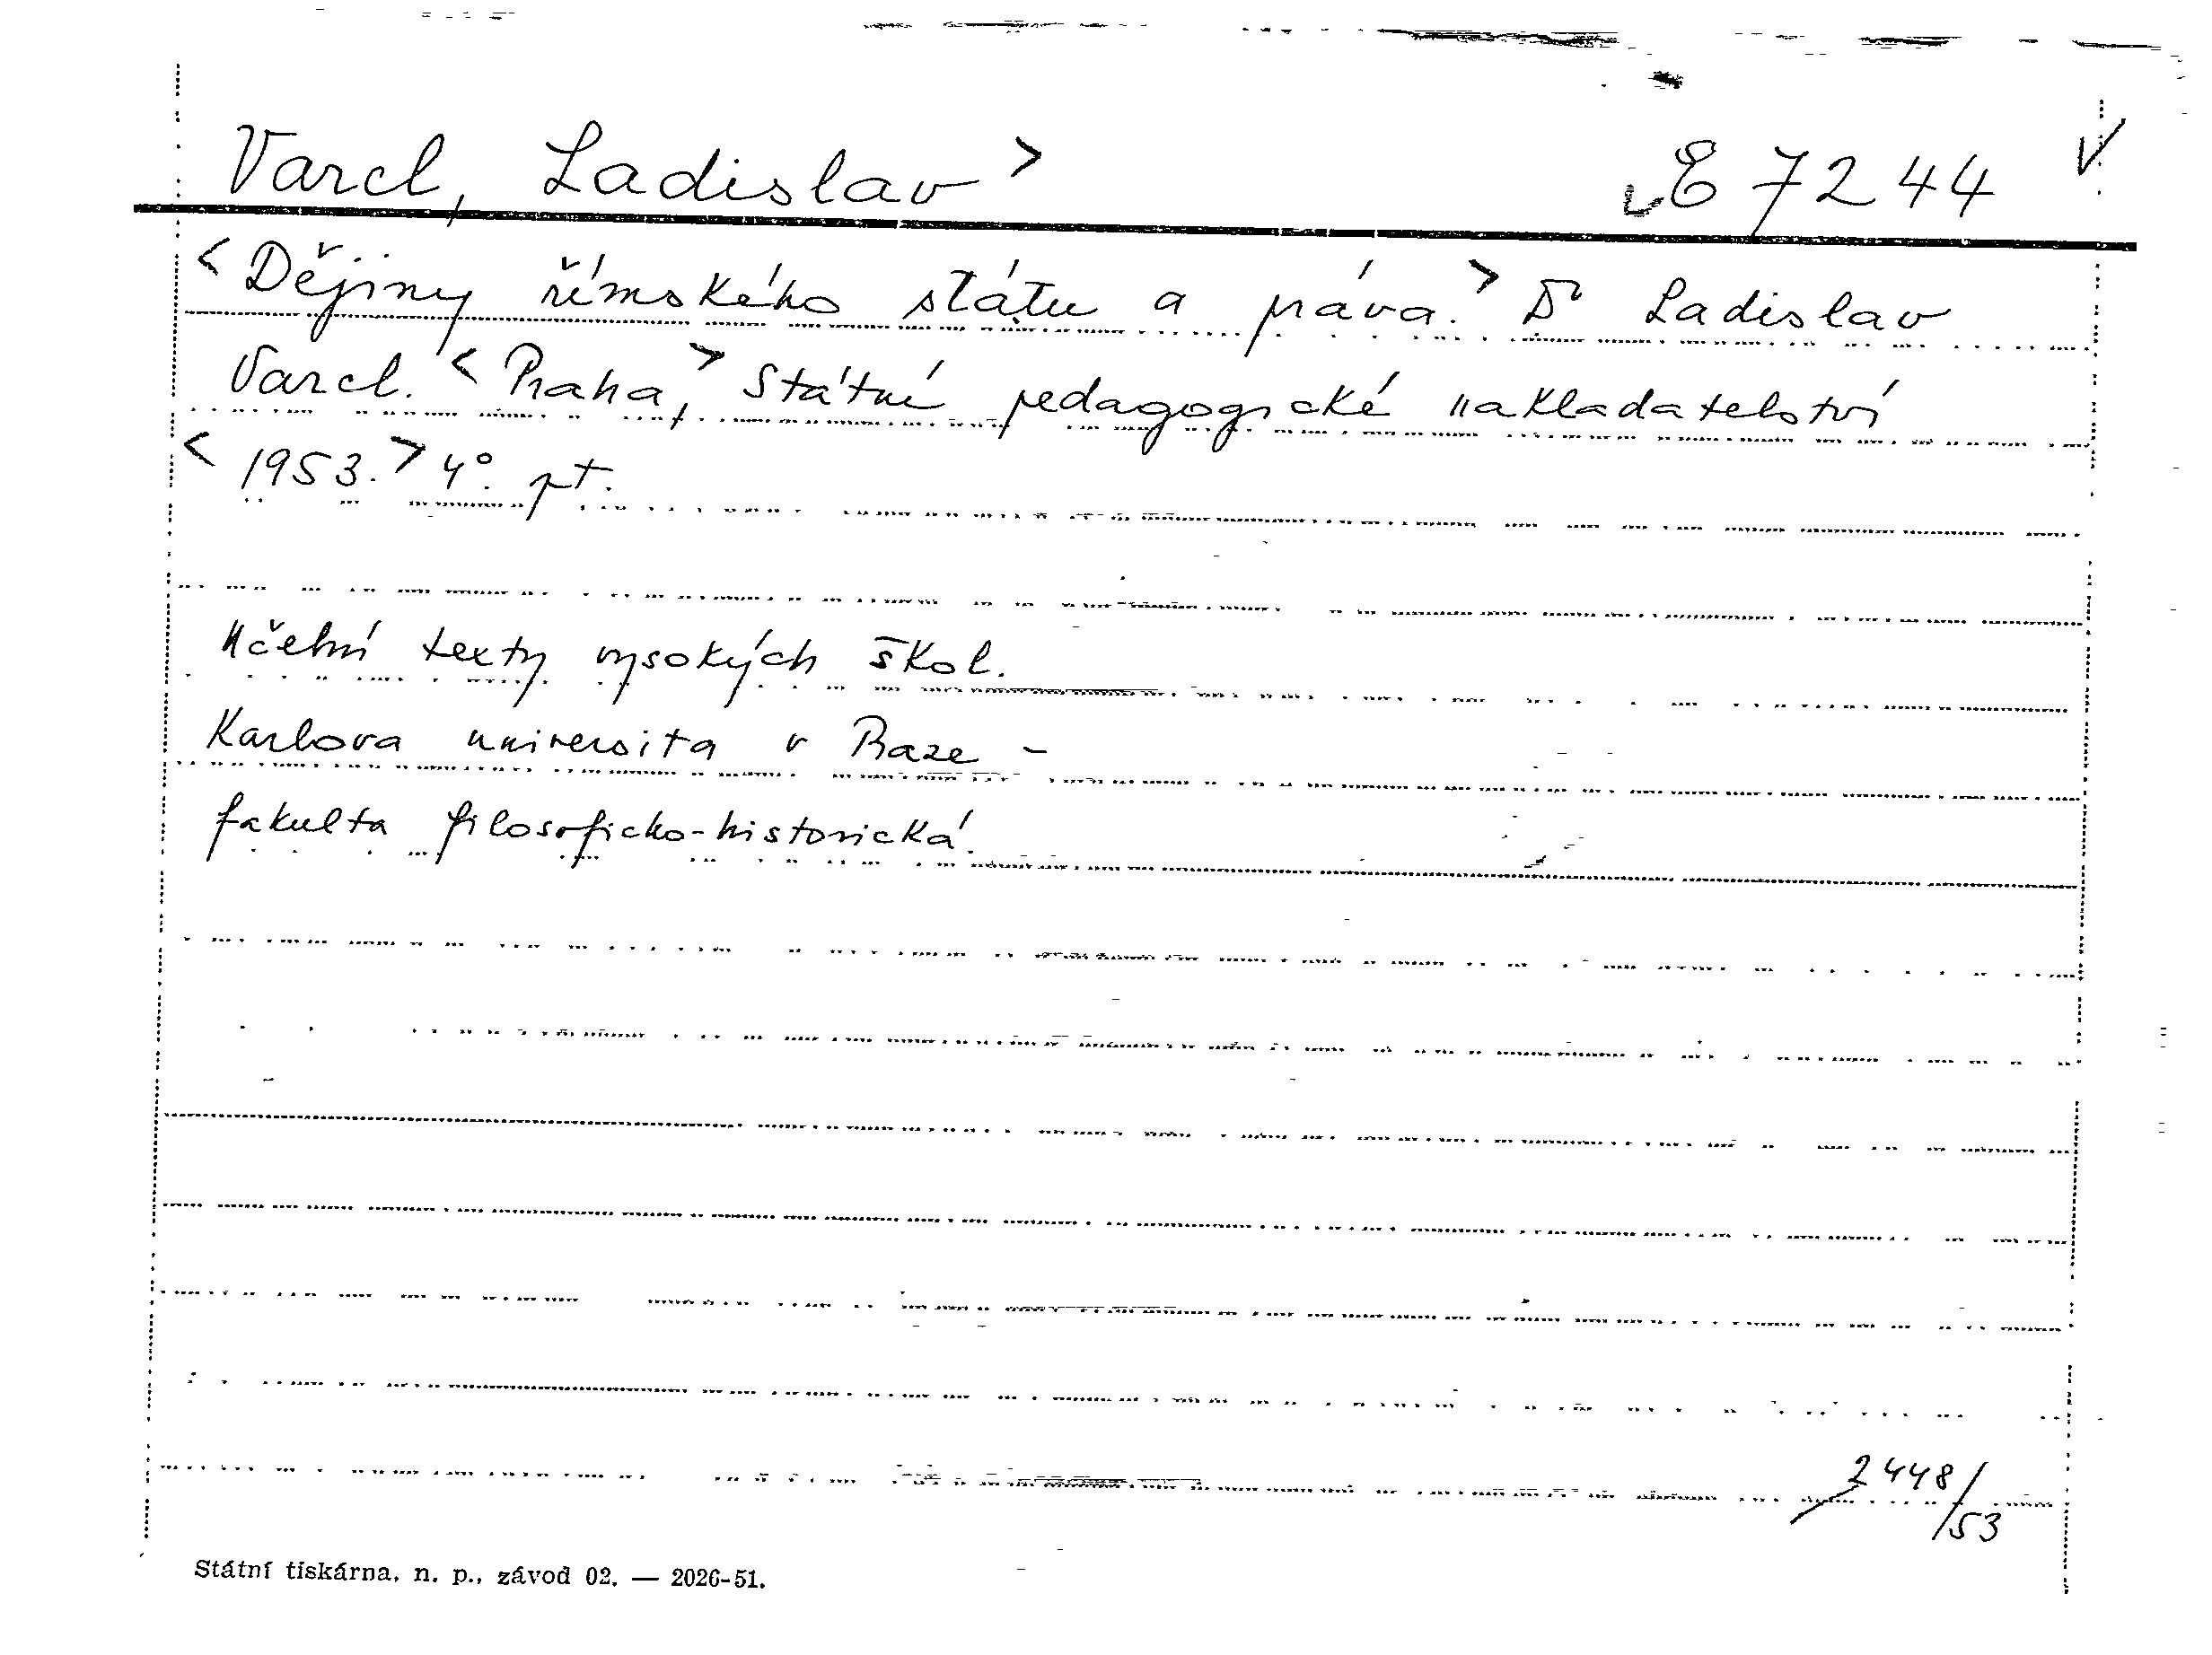 Varcl, Ladislav > E 7244 V
<Dějiny římského státu a práva.> Dr Ladislav
Varcl. <Praha,> Státní pedagogické nakladatelství
<1953.> 4°. pt.
Učební texty vysokých škol.
Karlova universita v Praze -
fakulta filosoficko-historická.
2448/53
Státní tiskárna, n. p., závod 02. — 2026-51.